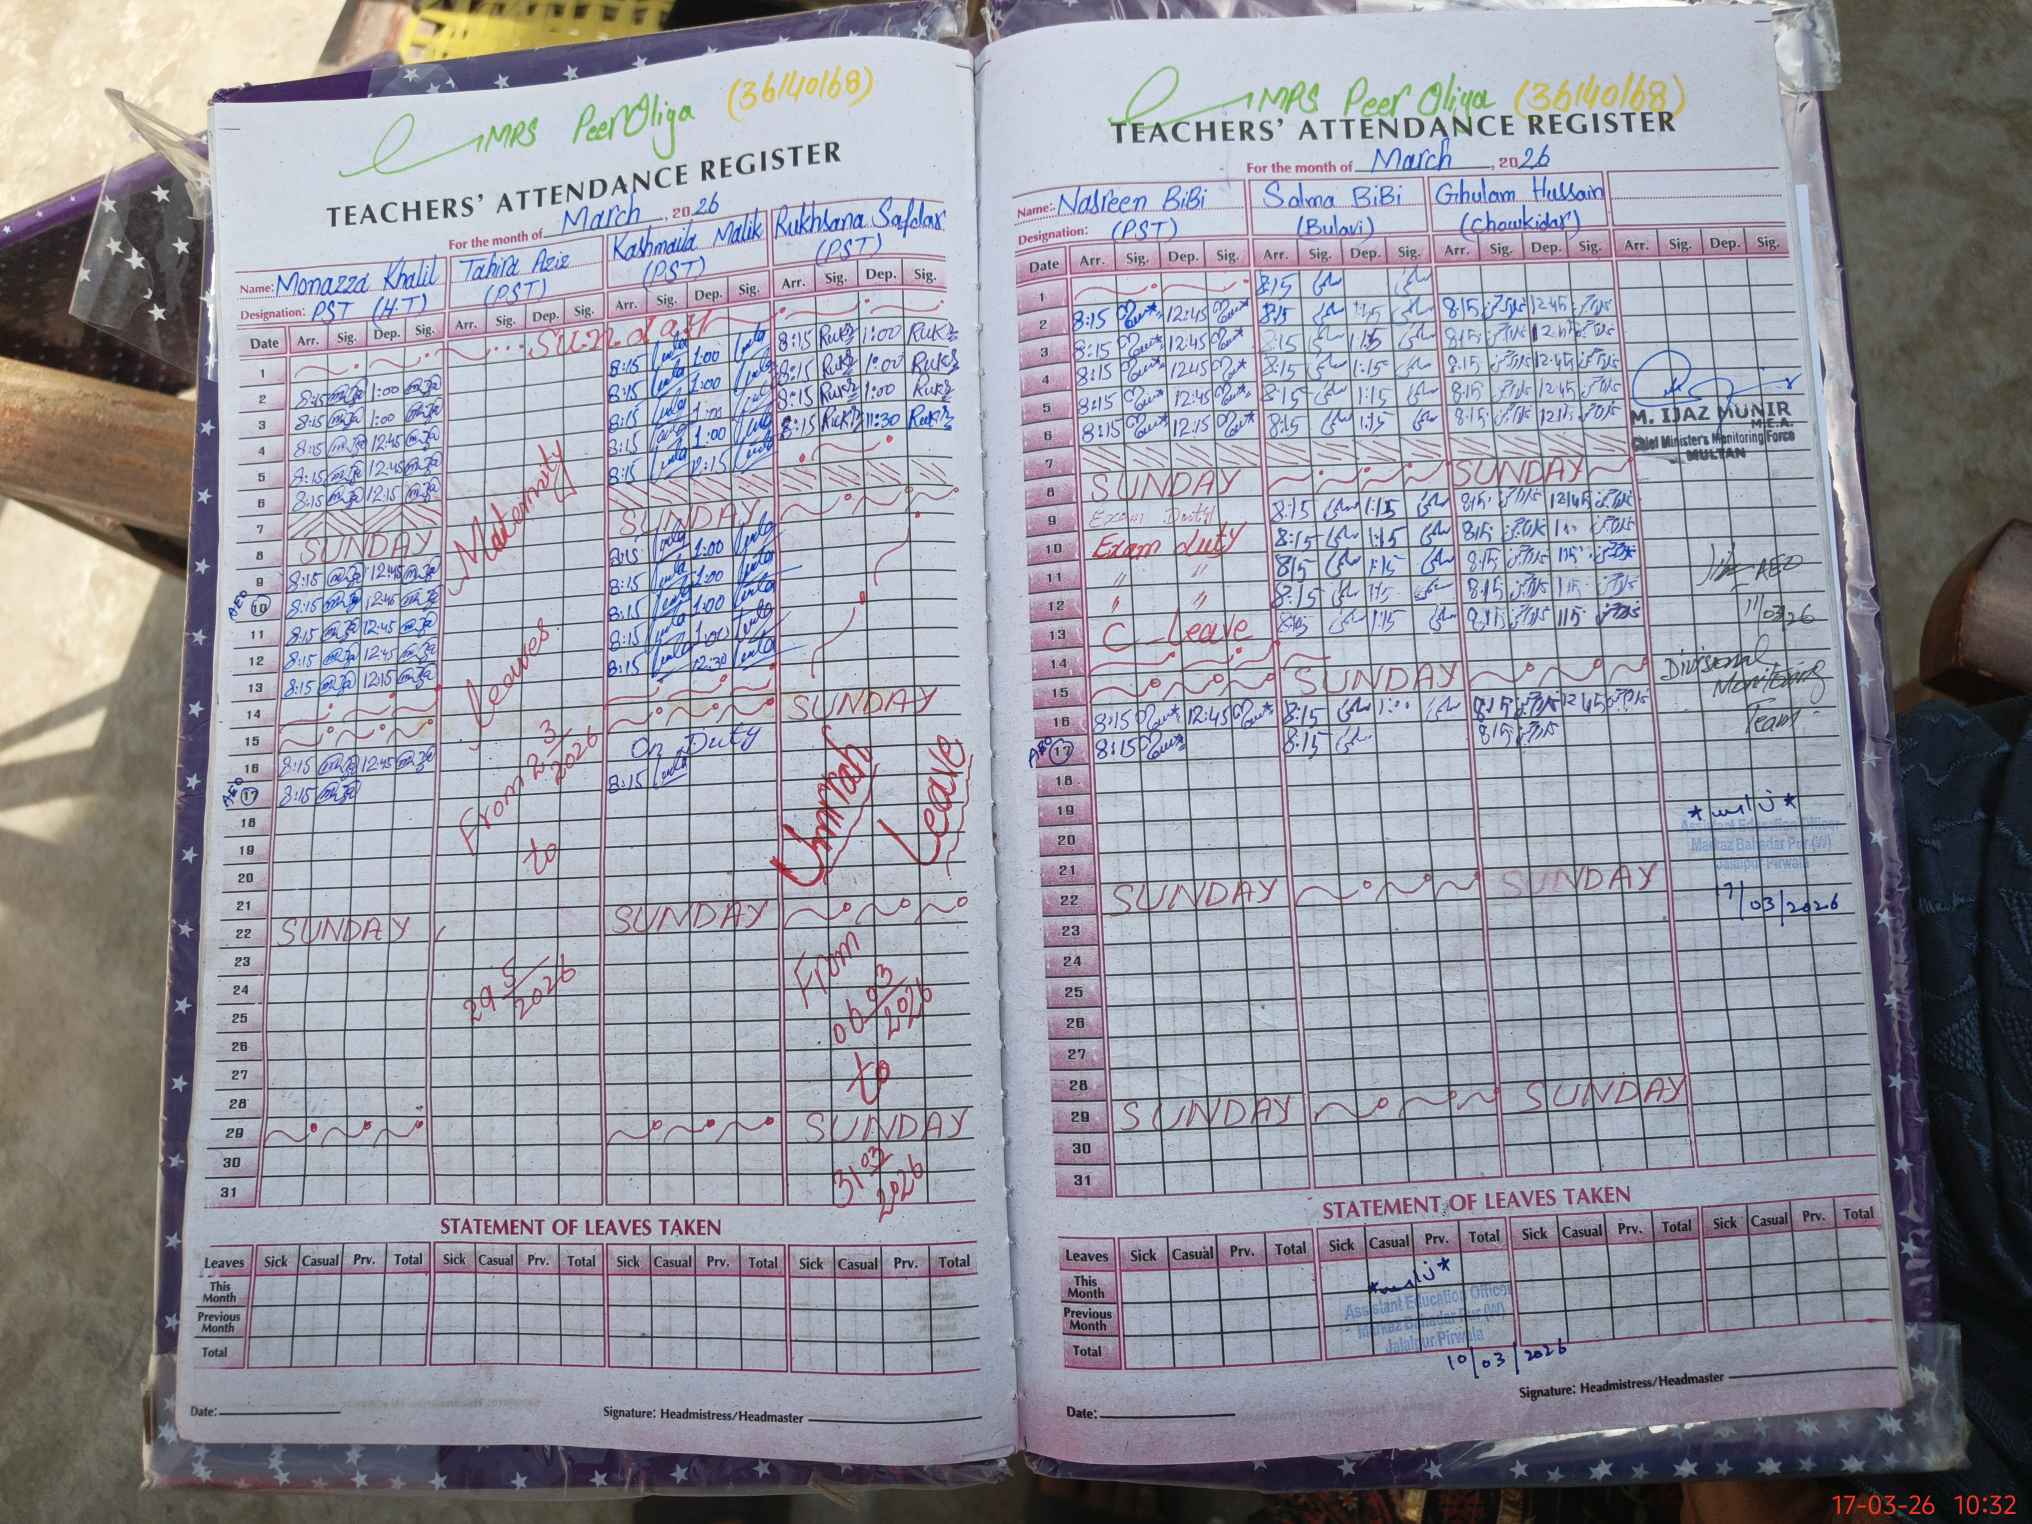 MPS Peer Oliya (36140168)
TEACHERS' ATTENDANCE REGISTER
For the month of March, 2026
Name: Monazza Khalil Tahira Aziz Kashmaila Malik Rukhsana Safdar
Designation: PST (H.T) (PST) (PST) (PST)
Date Arr. Sig. Dep. Sig. Arr. Sig. Dep. Sig. Arr. Sig. Dep. Sig. Arr. Sig. Dep. Sig.
1 Sunday
2 8:15 1:00 8:15 1:00 8:15 1:00
3 8:15 1:00 8:15 1:00 8:15 1:00
4 8:15 12:45 8:15 1:00 8:15 1:00
5 8:15 12:45 8:15 1:00 8:15 11:30
6 8:15 12:15 8:15 12:15
7
8 SUNDAY SUNDAY
9 8:15 12:45 8:15 1:00
AEO 10 8:15 12:45 8:15 1:00
11 8:15 12:45 8:15 1:00
12 8:15 12:45 8:15 1:00
13 8:15 12:15 8:15 12:30
14
15 SUNDAY
16 8:15 12:45 On Duty
AEO 17 8:15 8:15
18
19
20
21
22 SUNDAY SUNDAY
23
24
25
26
27
28
29 SUNDAY
30
31
Maternity
Leaves
From 2 3/2026
to
29 5/2026
Ummrah
Leave
From
06 03/2026
to
31 03/2026
STATEMENT OF LEAVES TAKEN
Leaves Sick Casual Prv. Total Sick Casual Prv. Total Sick Casual Prv. Total Sick Casual Prv. Total
This Month
Previous Month
Total
Date: Signature: Headmistress/Headmaster
MPS Peer Oliya (36140168)
TEACHERS' ATTENDANCE REGISTER
For the month of March, 2026
Name:- Nasreen BiBi Salma BiBi Ghulam Hussain
Designation: (PST) (Bulavi) (Chowkidar)
Date Arr. Sig. Dep. Sig. Arr. Sig. Dep. Sig. Arr. Sig. Dep. Sig. Arr. Sig. Dep. Sig.
1 8:15
2 8:15 12:45 8:15 1:15 8:15 12:45
3 8:15 12:45 8:15 1:15 8:15 12:45
4 8:15 12:45 8:15 1:15 8:15 12:45
5 8:15 12:45 8:15 1:15 8:15 12:45
6 8:15 12:15 8:15 1:15 8:15 12:15
7
8 SUNDAY SUNDAY
9 Exam Duty 8:15 1:15 8:15 12:45
10 Exam duty 8:15 1:15 8:15
11 " " 8:15 1:15 8:15 1:15
12 " " 8:15 1:15 8:15 1:15
13 C - Leave 8:15 1:15 8:15 1:15
14
15 SUNDAY
16 8:15 12:45 8:15 1:00 8:15 12:45
AEO 17 8:15 8:15 8:15
18
19
20
21
22 SUNDAY SUNDAY
23
24
25
26
27
28
29 SUNDAY SUNDAY
30
31
M. IJAZ MUNIR
M.E.A.
Chief Minister's Monitoring Force
MULTAN
AEO
11/03/26
Divisional
Monitoring
Team
Assistant Education Officer
Markaz Bahadar Pur (W)
Jalalpur Pirwala
17/03/2026
STATEMENT OF LEAVES TAKEN
Leaves Sick Casual Prv. Total Sick Casual Prv. Total Sick Casual Prv. Total Sick Casual Prv. Total
This Month
Previous Month
Total
Assistant Education Officer
Markaz Bahadar Pur (W)
Jalalpur Pirwala
10/03/2026
Date: Signature: Headmistress/Headmaster
17-03-26 10:32